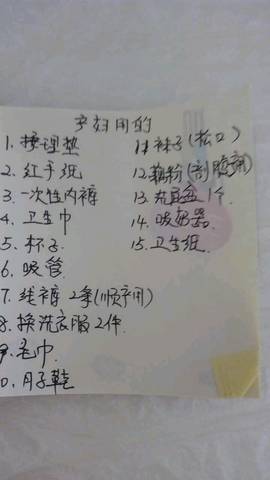 孕妇用的
1. 护理垫
2. 红手纸
3. 一次性内裤
4. 卫生巾
5. 杯子
6. 吸管
7. 线裤 2条(顺产用)
8. 换洗衣服2件
9. 毛巾
10. 月子鞋
11 袜子(松口)
12. 藕粉(剖腹产用)
13. 洗屁盆1个
14. 吸奶器
15. 卫生纸